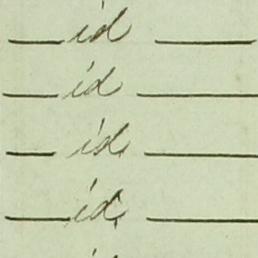 id
id
id.
id.